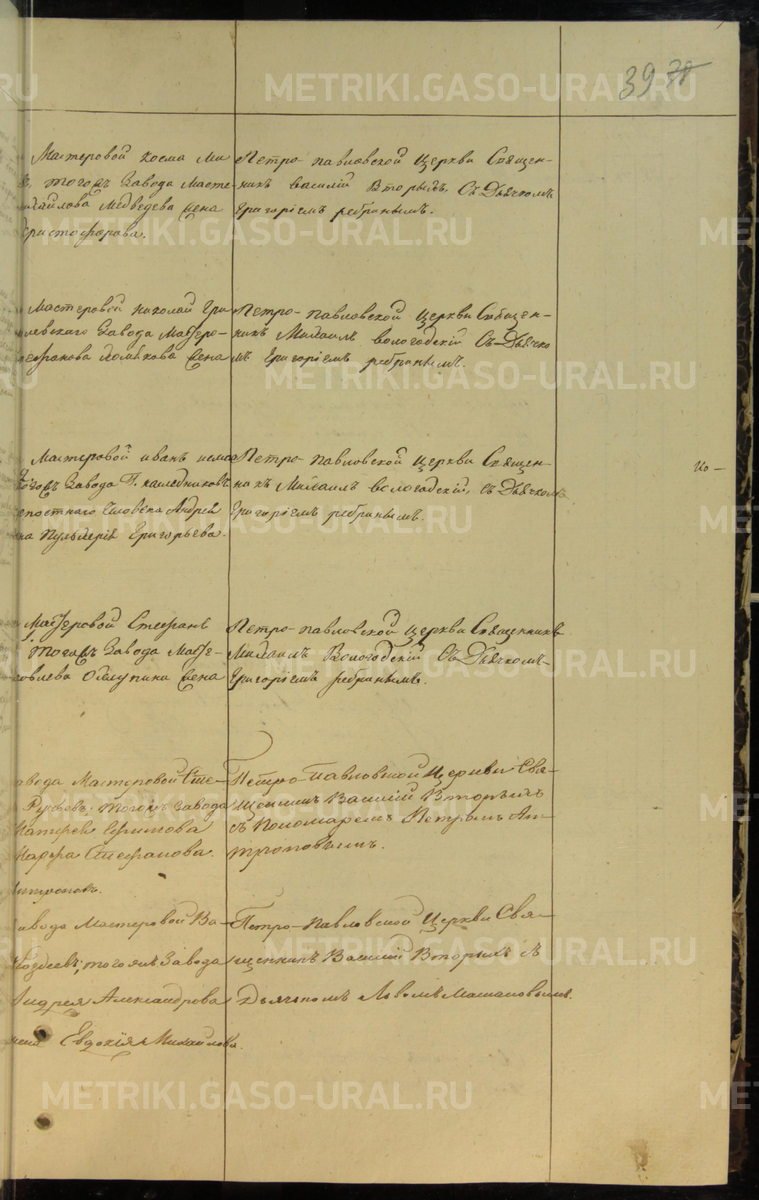 39
Мастеровой косма Ми
тогожъ завода Масте
хайлова Медведева жена
Христофорова.
Петро-павловской церкви Священ-
никъ василій Вторыхъ. Съ Дьячкомъ
Григоріемъ ребринымъ.
Мастеровой николай Гри
левскаго завода Мастеро-
Стефанова жена
Петро-павловской церкви Священ-
никъ Михаилъ вологодскій Съ Дьячко
мъ Григоріемъ ребринымъ.
Мастеровой иванъ
завода Г. наследниковъ
постнаго человека Андрея
на Пульхерія Григорьева.
Петро-павловской церкви Священ-
никъ Михаилъ вологодскій, съ Дьячкомъ
Григоріемъ ребринымъ.
Мастеровой Стефанъ
тогожъ завода Масте-
ковлева жена
Петро-павловской церкви Священникъ
Михаилъ Вологодскій Съ Дьячкомъ
Григоріемъ ребринымъ.
завода Мастеровой Сте-
тогожъ завода
Ефимова
Марфа Стефанова.
Петро-Павловской церкви Свя-
щенникъ Василій Вторыхъ
съ Пономаремъ Петромъ Ан-
троповымъ.
завода Мастеровой Ва-
Гвоздевъ; тогожъ завода
Андрея Александрова
жена Евдокія Михайлова.
Петро-Павловской церкви Свя-
щенникъ Василій Вторыхъ съ
Дьячкомъ Львомъ
METRIKI.GASO-URAL.RU